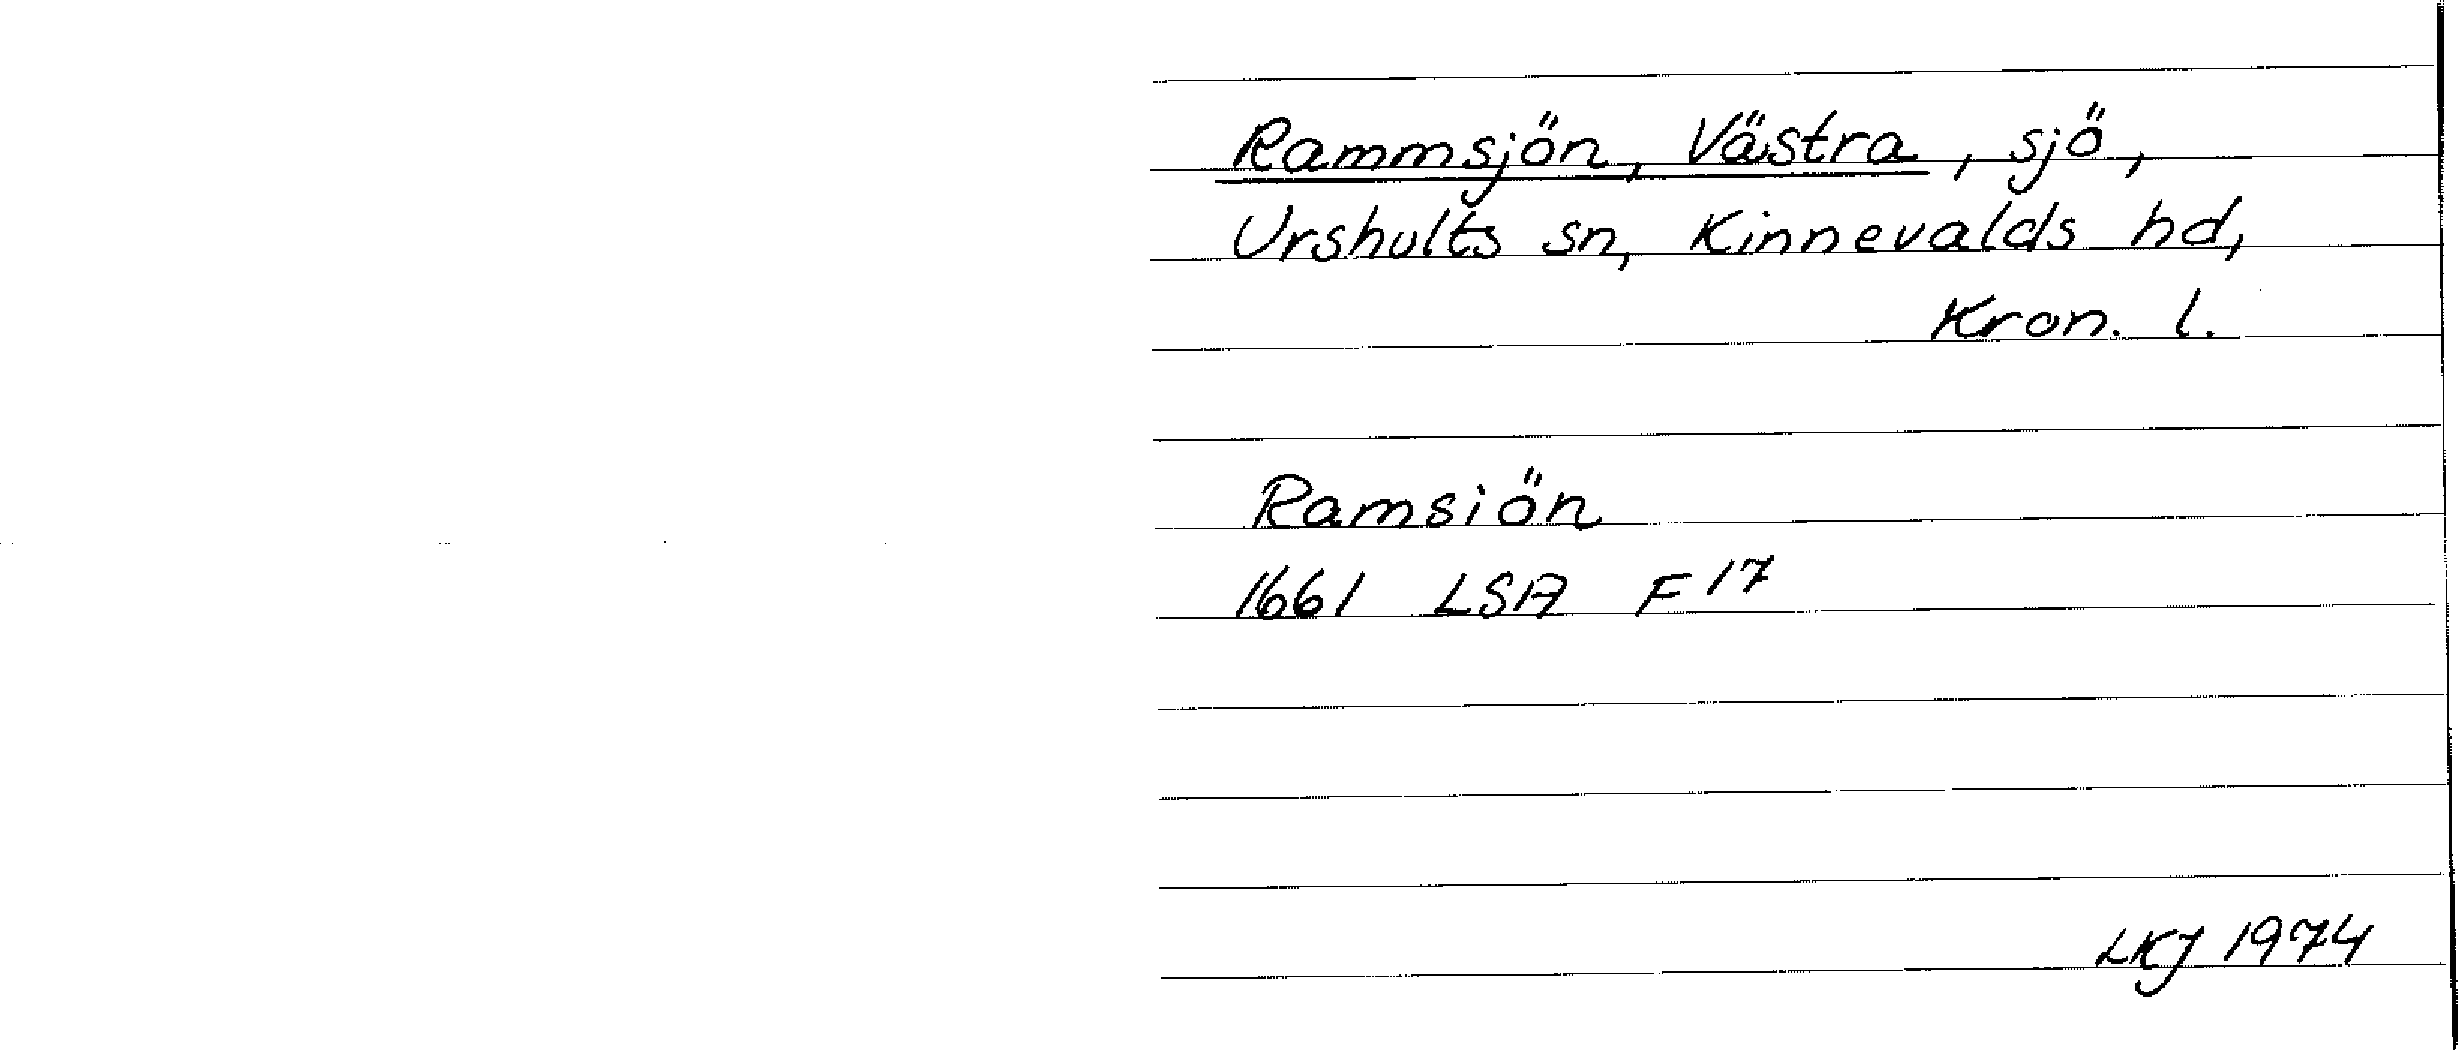 Rammsjön, Västra, sjö,
Urshults sn, Kinnevalds hd,
Kron. l.
Ramsiön
1661 LSA F 17
LKJ 1974